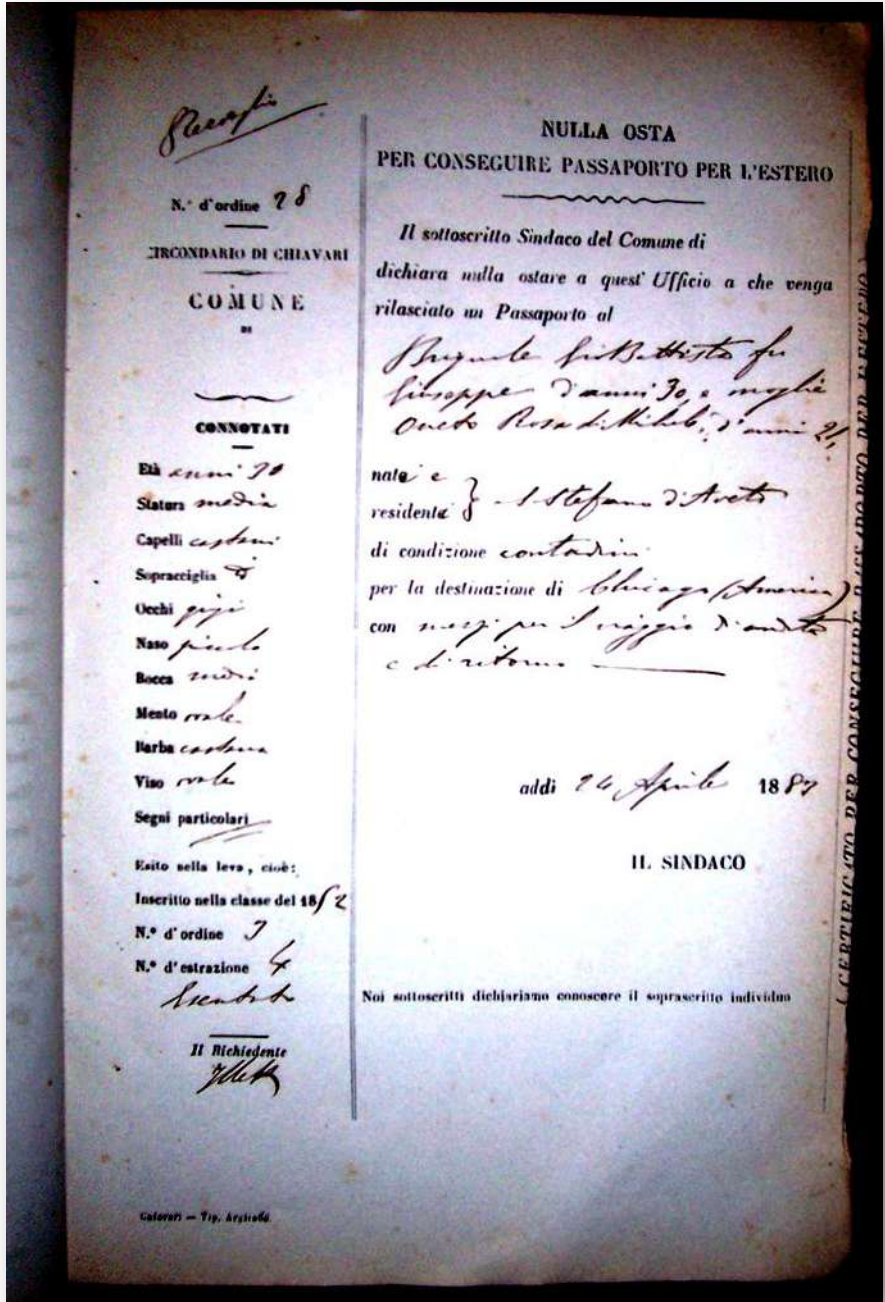 N.° d'ordine 28
CIRCONDARIO DI CHIAVARI
COMUNE
DI
CONNOTATI
Età anni 30
Statura media
Capelli castani
Sopracciglia
Occhi gigi
Naso piccolo
Bocca media
Mento ovale
Barba castana
Viso ovale
Segni particolari
Esito nella leva, cioè:
Inscritto nella classe del 1852
N.° d'ordine
N.° d'estrazione
Esentato
Il Richiedente
Tip. Argiroffo
NULLA OSTA
PER CONSEGUIRE PASSAPORTO PER L'ESTERO
Il sottoscritto Sindaco del Comune di
dichiara nulla ostare a quest' Ufficio a che venga
rilasciato un Passaporto al
Brignole Gio Battista fu
Giuseppe d'anni 30, e moglie
Oneto Rosa di Michele, d'anni 21,
nati e
residenti } S Stefano d'Aveto
di condizione contadini
per la destinazione di Chicago (America)
con mezzi per il viaggio d'andata
e di ritorno
addì 24 Aprile 1883
IL SINDACO
Noi sottoscritti dichiariamo conoscere il soprascritto individuo
(CERTIFICATO PER CONSEGUIRE PASSAPORTO PER L'ESTERO)